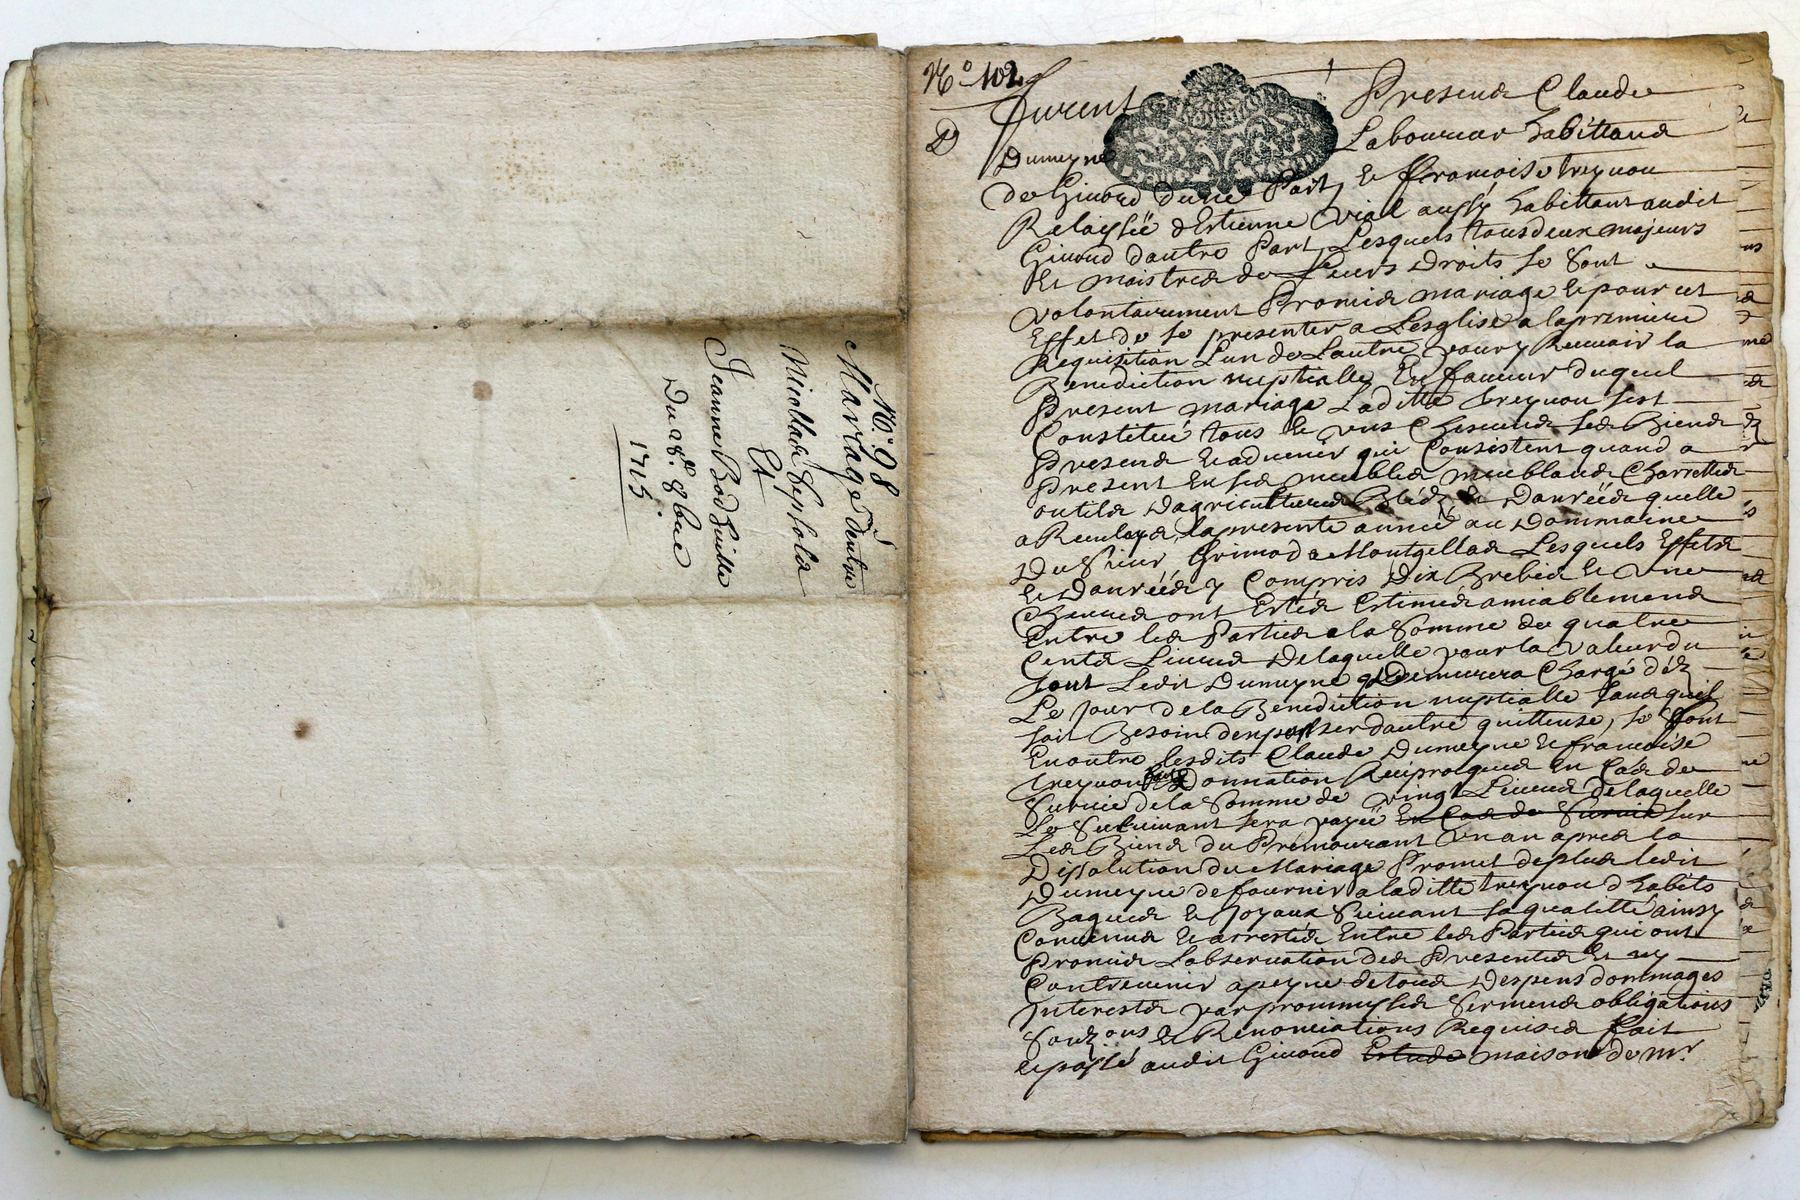 N.º 98
Mariage d'entre
Nicollas
Et
Jeanne
Du 28.me 8bre
1715.
N.º 102
Furent Presens Claude
Dumeyne Laboureur habittans
de Givord dune Part, et francoise treynon
Relaysseé d'Estienne Vial aussy habittant audit
Givord dautre Part, Lesquels tous deux majeurs
Et maistres de Leurs Droits se sont
volontairement Promis mariage et pour cet
Effet de se presenter a Lesglise a la premiere
Requisition Lun de Lautre pour y Recevoir la
Benediction nuptialle, En faveur duquel
Present mariage Laditte treynon sest
Constitué tous et uns Chescuns ses Biens
Presens et advenir qui Consistent quand a
Present En ses meubles meublans Charrettes
outils Dagriculture Bleds et Danreés quelle
a Recully la presente anneé au Dommaine
Du Sieur Grimod a Montgellas Lesquels Effets
et Danreés y Compris Dix Brebis et une
Chevre ont Estés Estimés amiablement
Entre les Parties a la Somme de quatre
Cents Livres De laquelle pour la valeur du
tout Ledit Dumeyne Demurera Chargé déz
Le Jour de la Benediction nuptialle sans quil
soit Besoin den passer dautre quittense, se sont
En outre lesdits Claude Dumeyne et francoise
treynon faits Donnation Reciproques En Cas de
Survie de la Somme de vingt Livres de laquelle
Le Survivant sera payé En Cas de Survie sur
Les Biens du Premourant un an apres la
Dissolution du Mariage Promet de plus ledit
Dumeyne de fournir a laditte treynon d'habits
Bagues et Joyaux Suivant sa qualitté ainsy
Convenus et arrestés Entre les Parties qui ont
Promis Lobservation des Presentes Et ny
Contrevenir a peyne de tous Despens dommages
Interests par prommysses Sermens obligations
et Renonciations Requises fait
et passé audit Givord Estude maison de mr.